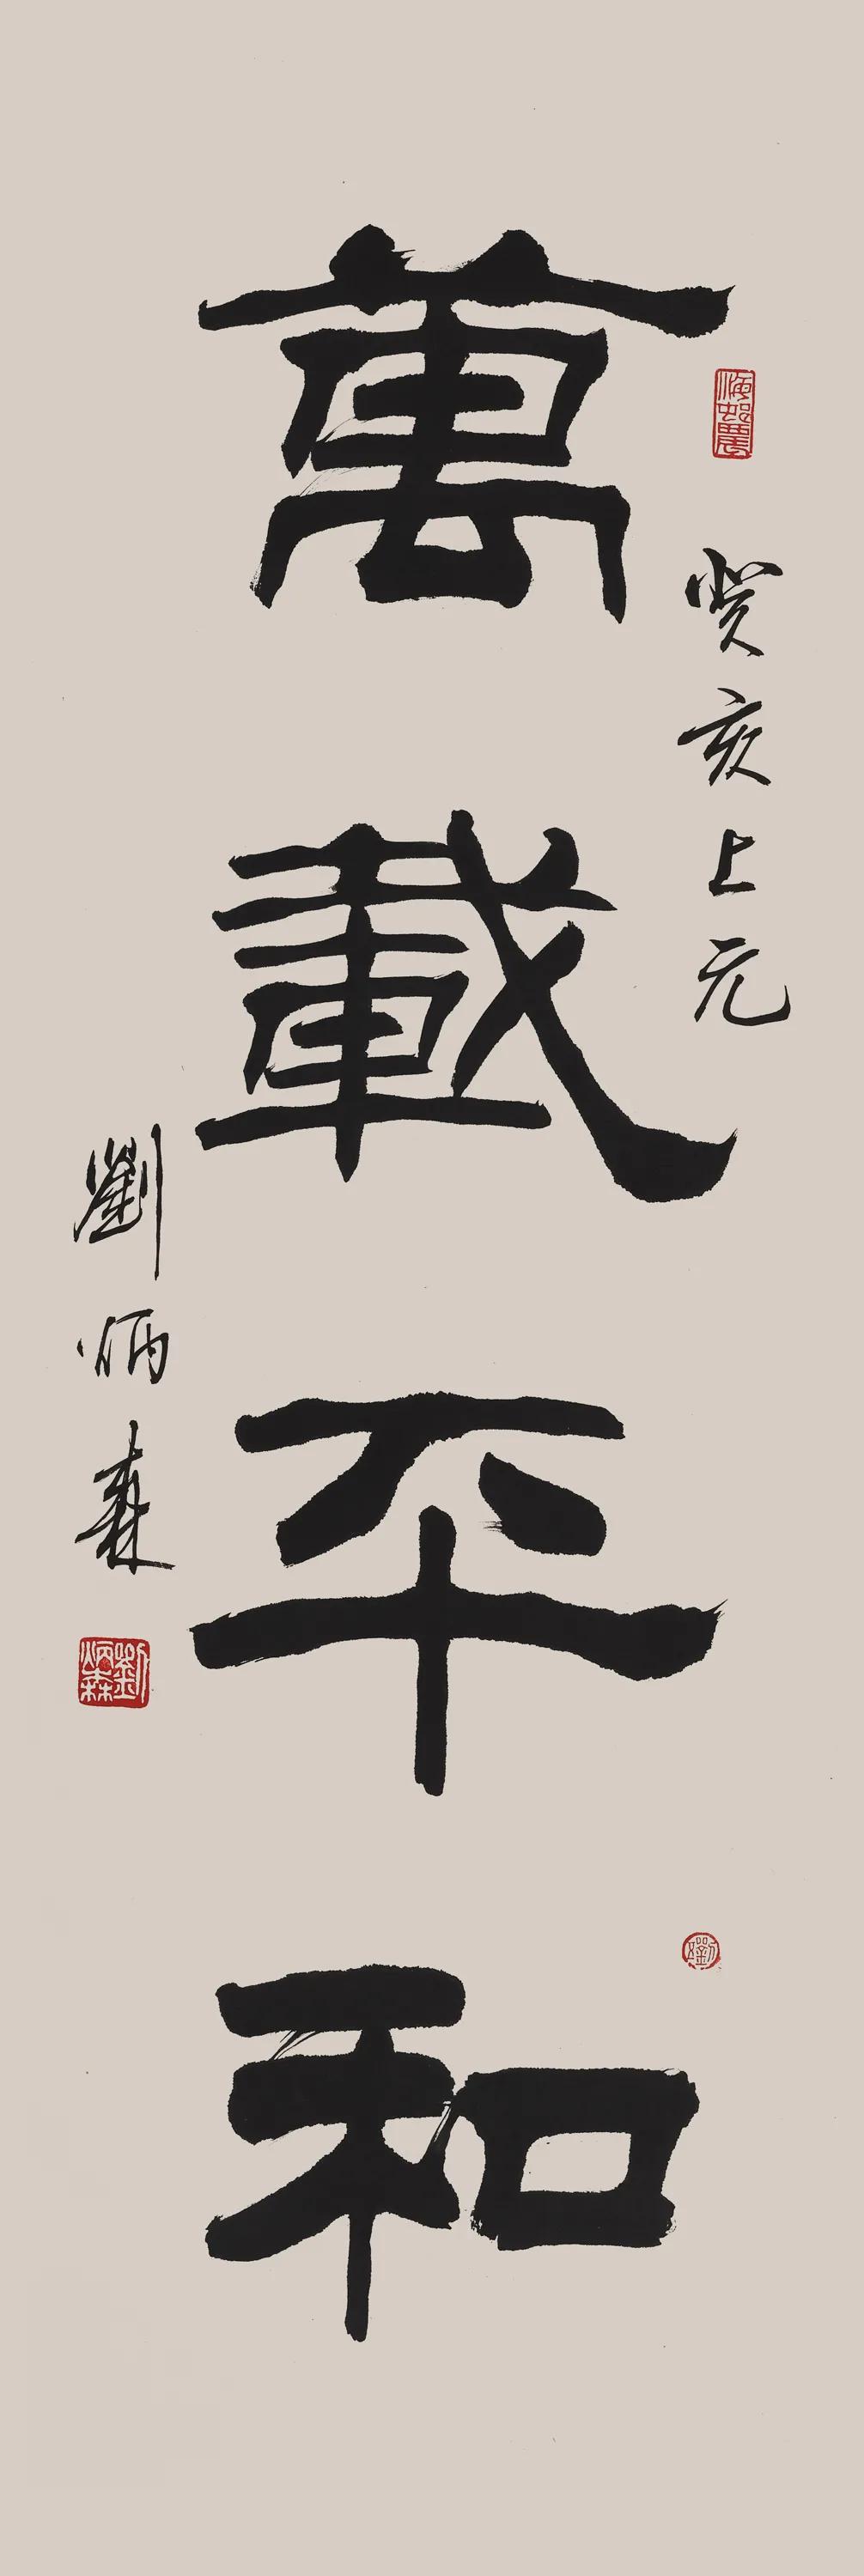 癸亥上元
萬載平和
劉炳森
劉炳森
劉